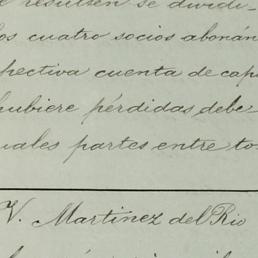 resulten se dividi-
los cuatro socios abonán
pectiva cuenta de cap
hubiere pérdidas debe
uales partes entre to
V. Martinez del Rio